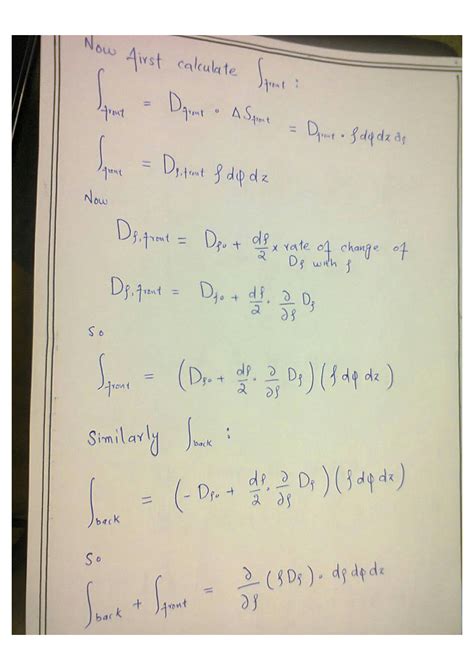 Now first calculate ∫front :
∫front = Dfront • ΔSfront = Dfront • ρ dφ dz aρ
∫front = Dρ,front ρ dφ dz
Now
Dρ,front = Dρ0 + dρ/2 × rate of change of
Dρ with ρ
Dρ,front = Dρ0 + dρ/2 . ∂/∂ρ Dρ
So
∫front = (Dρ0 + dρ/2 . ∂/∂ρ Dρ) (ρ dφ dz)
Similarly ∫back :
∫back = (- Dρ0 + dρ/2 . ∂/∂ρ Dρ) (ρ dφ dz)
So
∫back + ∫front = ∂/∂ρ (ρ Dρ) • dρ dφ dz